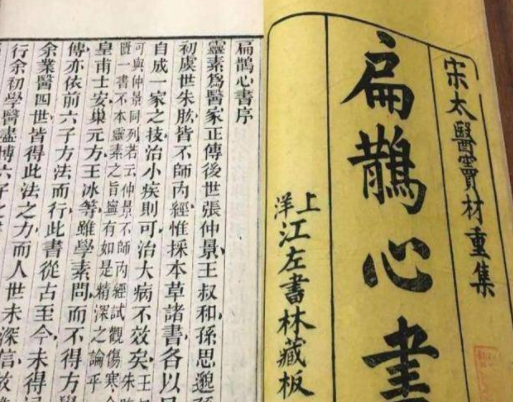 宋太醫竇材重集
扁鵲心書
上洋江左書林藏板
扁鵲心書序
靈素爲醫家正傳後世張仲景王叔和孫思邈孫
初虞世朱肱皆不師內經惟採本草諸書各以己
自成一家之技治小疾則可治大病不效矣
可與仲景同列若云仲景不師內經試觀傷寒金
一書不本靈素之旨寧有如是精深之論乎
皇甫士安巢元方王冰等雖學素問而不得方
傳亦依前六子方法而行此書從古至今未得
余業醫四世皆得此法之力而人世未深信故
行余初學醫盡博六子之書